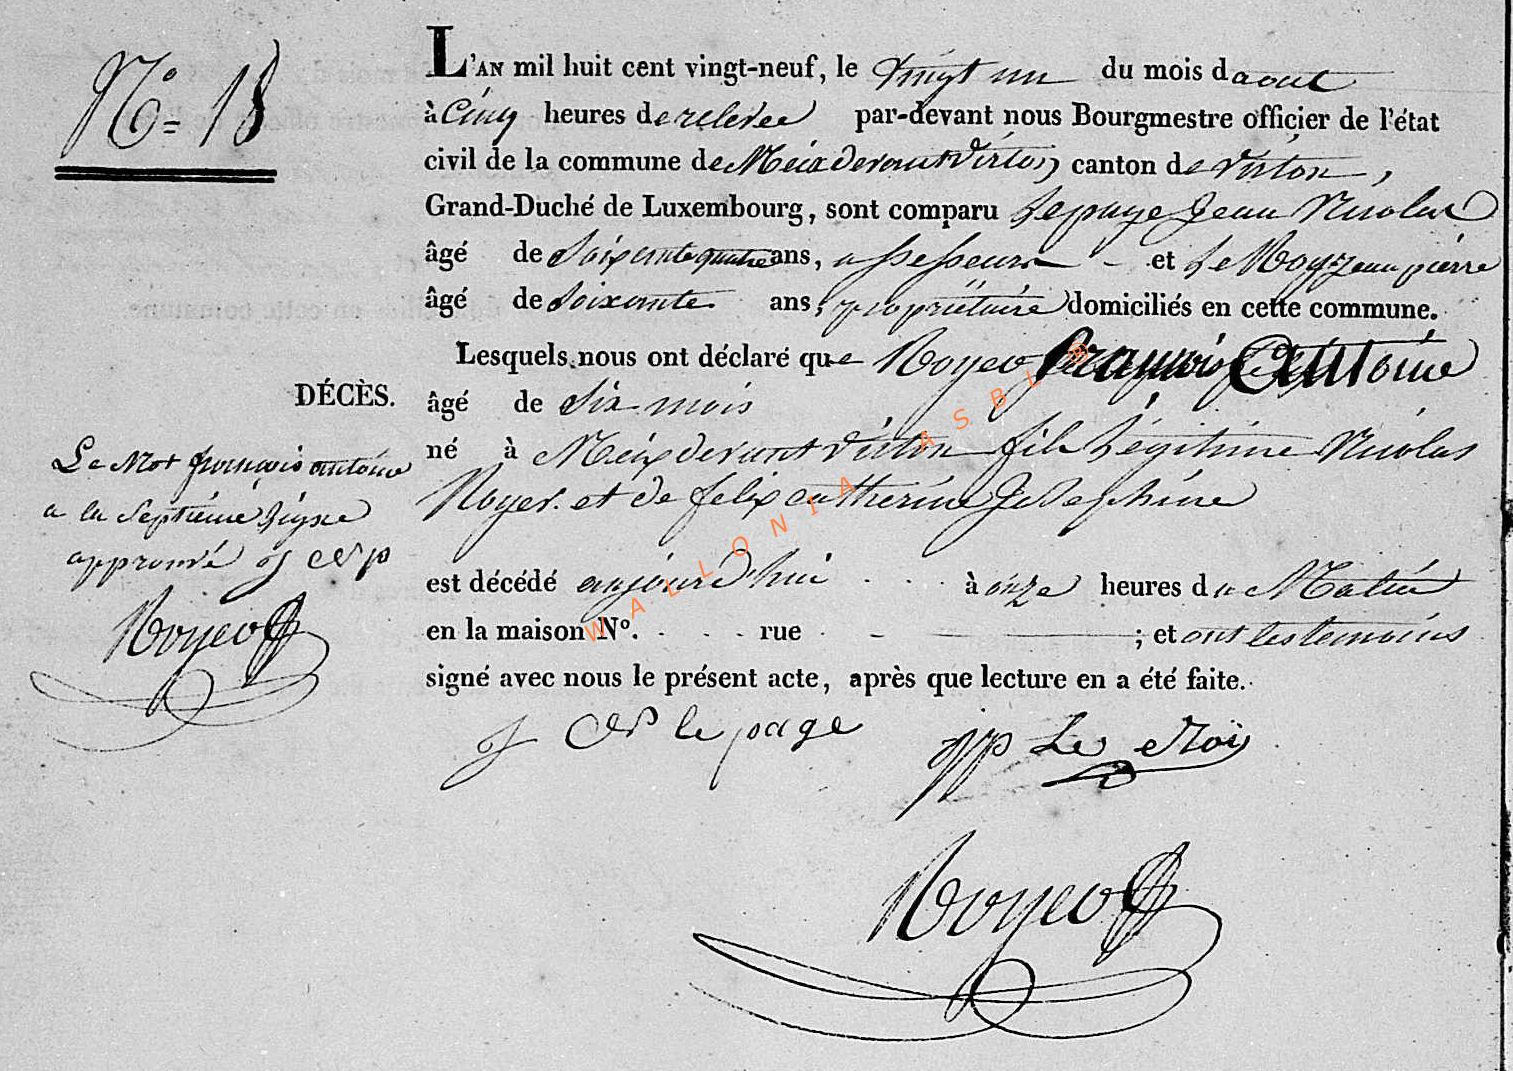 N° = 18
L'AN mil huit cent vingt-neuf, le vingt un du mois d'aout
à cinq heures de relevée par-devant nous Bourgmestre officier de l'état
civil de la commune de Meix devant Virton, canton de Virton,
Grand-Duché de Luxembourg, sont comparu Lepage Jean Nicolas
âgé de soixante quatre ans, assesseur - et Le Roy jean pierre
âgé de soixante ans, propriétaire domiciliés en cette commune.
Lesquels nous ont déclaré que Royer françois Antoine
DÉCÈS.
âgé de six mois
né à Meix devant Virton fils légitime Nicolas
Royer. et de felix catherine Josephine
est décédé aujourd'hui . . . à onze heures du Matin
en la maison N°. . . . rue . - ; et ont les temoins
signé avec nous le présent acte, après que lecture en a été faite.
Le Mot françois antoine
a la septieme ligne
approuvé J N P
Royer
J N le page
JP Le Roi
Royer
WALLONIA ASBL